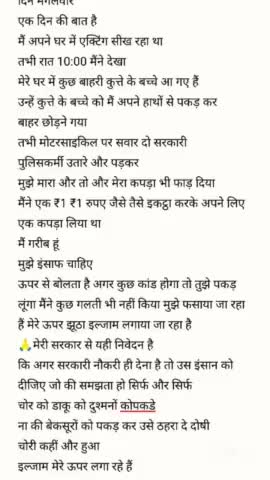 दिन मंगलवार
एक दिन की बात है
मैं अपने घर में एक्टिंग सीख रहा था
तभी रात 10:00 मैंने देखा
मेरे घर में कुछ बाहरी कुत्ते के बच्चे आ गए हैं
उन्हें कुत्ते के बच्चे को मैं अपने हाथों से पकड़ कर
बाहर छोड़ने गया
तभी मोटरसाइकिल पर सवार दो सरकारी
पुलिसकर्मी उतारे और पड़कर
मुझे मारा और तो और मेरा कपड़ा भी फाड़ दिया
मैंने एक ₹1 ₹1 रुपए जैसे तैसे इकट्ठा करके अपने लिए
एक कपड़ा लिया था
मैं गरीब हूं
मुझे इंसाफ चाहिए
ऊपर से बोलता है अगर कुछ कांड होगा तो तुझे पकड़
लूंगा मैंने कुछ गलती भी नहीं किया मुझे फसाया जा रहा
हैं मेरे ऊपर झूठा इल्जाम लगाया जा रहा है
🙏मेरी सरकार से यही निवेदन है
कि अगर सरकारी नौकरी ही देना है तो उस इंसान को
दीजिए जो की समझता हो सिर्फ और सिर्फ
चोर को डाकू को दुश्मनों कोपकडे
ना की बेकसूरों को पकड़ कर उसे ठहरा दे दोषी
चोरी कहीं और हुआ
इल्जाम मेरे ऊपर लगा रहे हैं